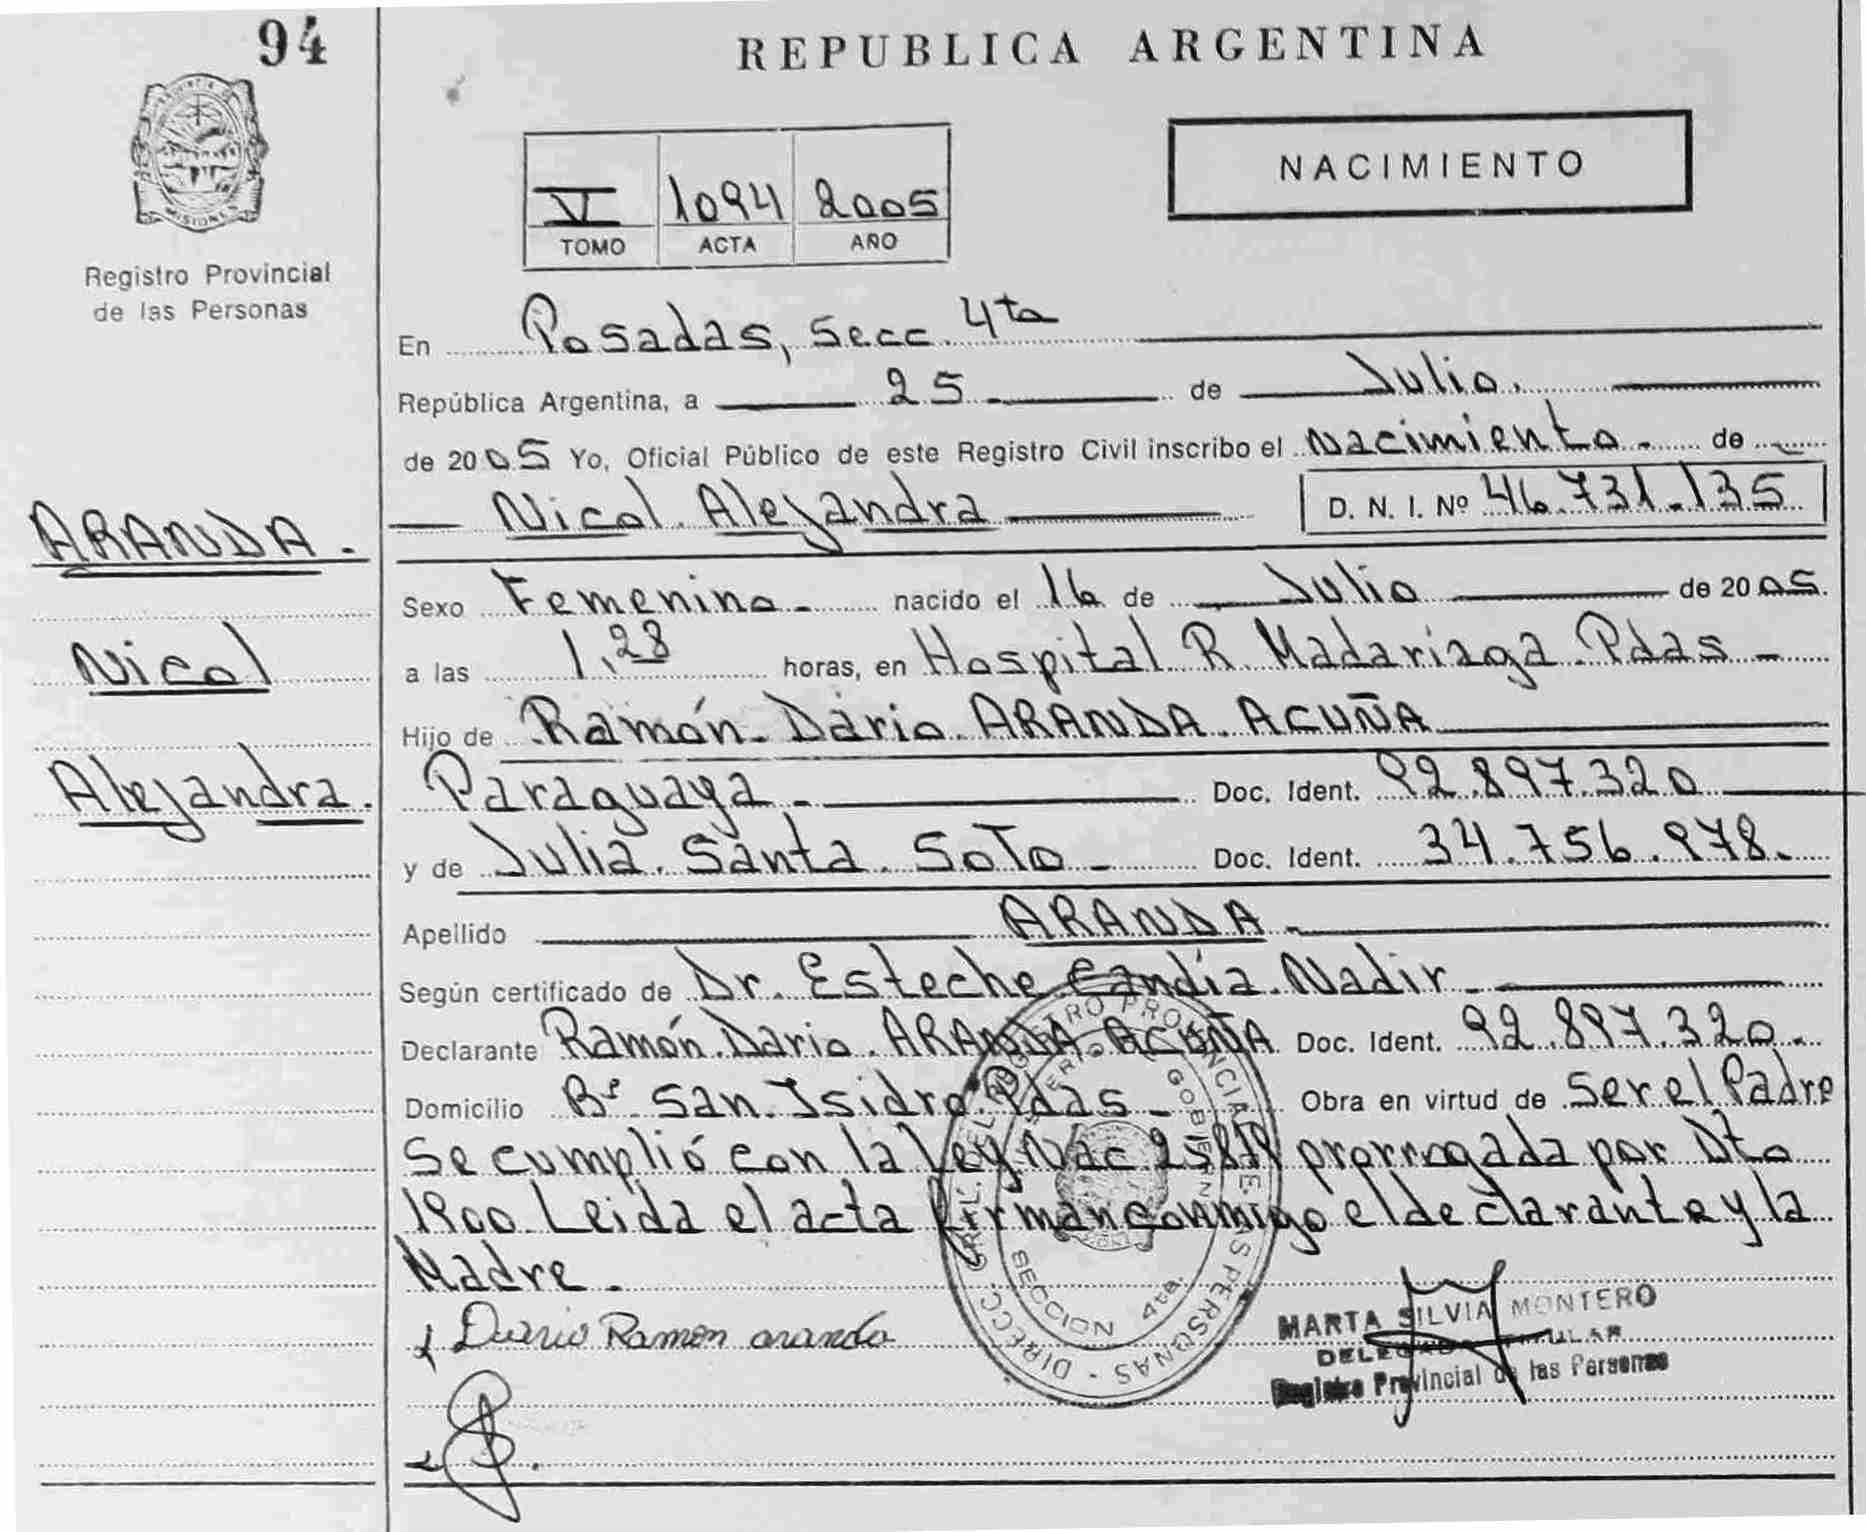 94
REPUBLICA ARGENTINA
MISIONES
Registro Provincial
de las Personas
NACIMIENTO
V 1094 2005
TOMO ACTA AÑO
En Posadas, Secc. 4ta
República Argentina, a 25 de Julio.
de 2005 Yo, Oficial Público de este Registro Civil inscribo el Nacimiento de
Nicol Alejandra D. N. I. Nº 46.731.135
ARANDA.
Nicol
Alejandra.
Sexo Femenino nacido el 16 de Julio de 2005.
a las 1,28 horas, en Hospital R Madariaga Pdas
Hijo de Ramón Dario ARANDA ACUÑA
Paraguaya Doc. Ident. 92.897.320
y de Julia Santa SOTO Doc. Ident. 34.756.978.
Apellido ARANDA
Según certificado de Dr. Esteche Candia Nadir
Declarante Ramón Dario ARANDA ACUÑA Doc. Ident. 92.897.320.
Domicilio Bº San Isidro Pdas Obra en virtud de Ser el Padre
Se cumplió con la Ley Nac. 25819 prorrogada por Dto
1900 Leida el acta firman conmigo el declarante y la
Madre.
Dario Ramon aranda
DIRECC. GRL. DEL REGISTRO PROVINCIAL DE LAS PERSONAS
SECCION 4ta.
MARTA SILVIA MONTERO
DELEGADO TITULAR
Registro Provincial de las Personas